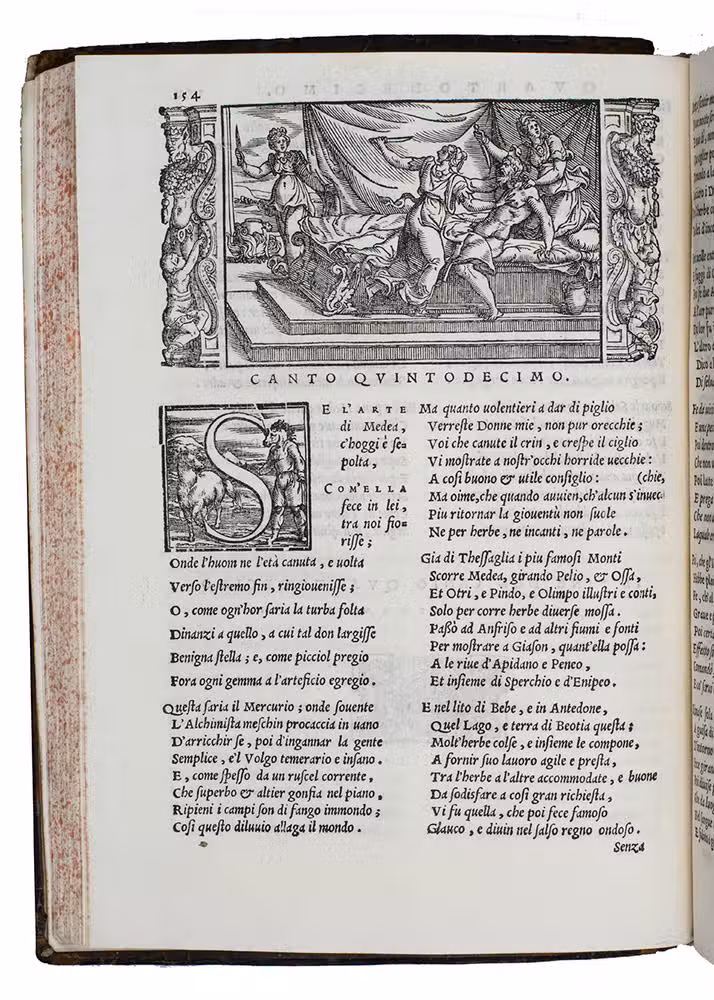 154
CANTO QVINTODECIMO.
SE L'ARTE
di Medea,
c'hoggi è ſe=
polta,
COM'ELLA
fece in lei,
tra noi fio=
riſſe;
Onde l'huom ne l'età canuta, e uolta
Verſo l'eſtremo fin, ringioueniſſe;
O, come ogn'hor ſaria la turba folta
Dinanzi a quello, a cui tal don largiſſe
Benigna ſtella; e, come picciol pregio
Fora ogni gemma a l'arteficio egregio.
Queſta ſaria il Mercurio; onde ſouente
L'Alchimiſta meſchin procaccia in uano
D'arricchir ſe, poi d'ingannar la gente
Semplice, e'l Volgo temerario e inſano.
E, come ſpeſſo da un ruſcel corrente,
Che ſuperbo & altier gonfia nel piano,
Ripieni i campi ſon di fango immondo;
Coſi queſto diluuio allaga il mondo.
Ma quanto uolentieri a dar di piglio
Verreſte Donne mie, non pur orecchie;
Voi che canute il crin, e creſpe il ciglio
Vi moſtrate a noſtr'occhi horride uecchie:
A coſi buono & utile conſiglio: (chie,
Ma oime, che quando auuien, ch'alcun s'inuec
Piu ritornar la giouentù non ſuole
Ne per herbe, ne incanti, ne parole.
Gia di Theſſaglia i piu famoſi Monti
Scorre Medea, girando Pelio, & Oſſa,
Et Otri, e Pindo, e Olimpo illuſtri e conti,
Solo per corre herbe diuerſe moſſa.
Paßò ad Anfriſo e ad altri fiumi e fonti
Per moſtrare a Giaſon, quant'ella poſſa:
A le riue d'Apidano e Peneo,
Et inſieme di Sperchio e d'Enipeo.
E nel lito di Bebe, e in Antedone,
Quel Lago, e terra di Beotia queſta;
Molt'herbe colſe, e inſieme le compone,
A fornir ſuo lauoro agile e preſta,
Tra l'herbe a l'altre accommodate, e buone
Da ſodisfare a coſi gran richieſta,
Vi fu quella, che poi fece famoſo
Glauco, e diuin nel ſalſo regno ondoſo.
Senza